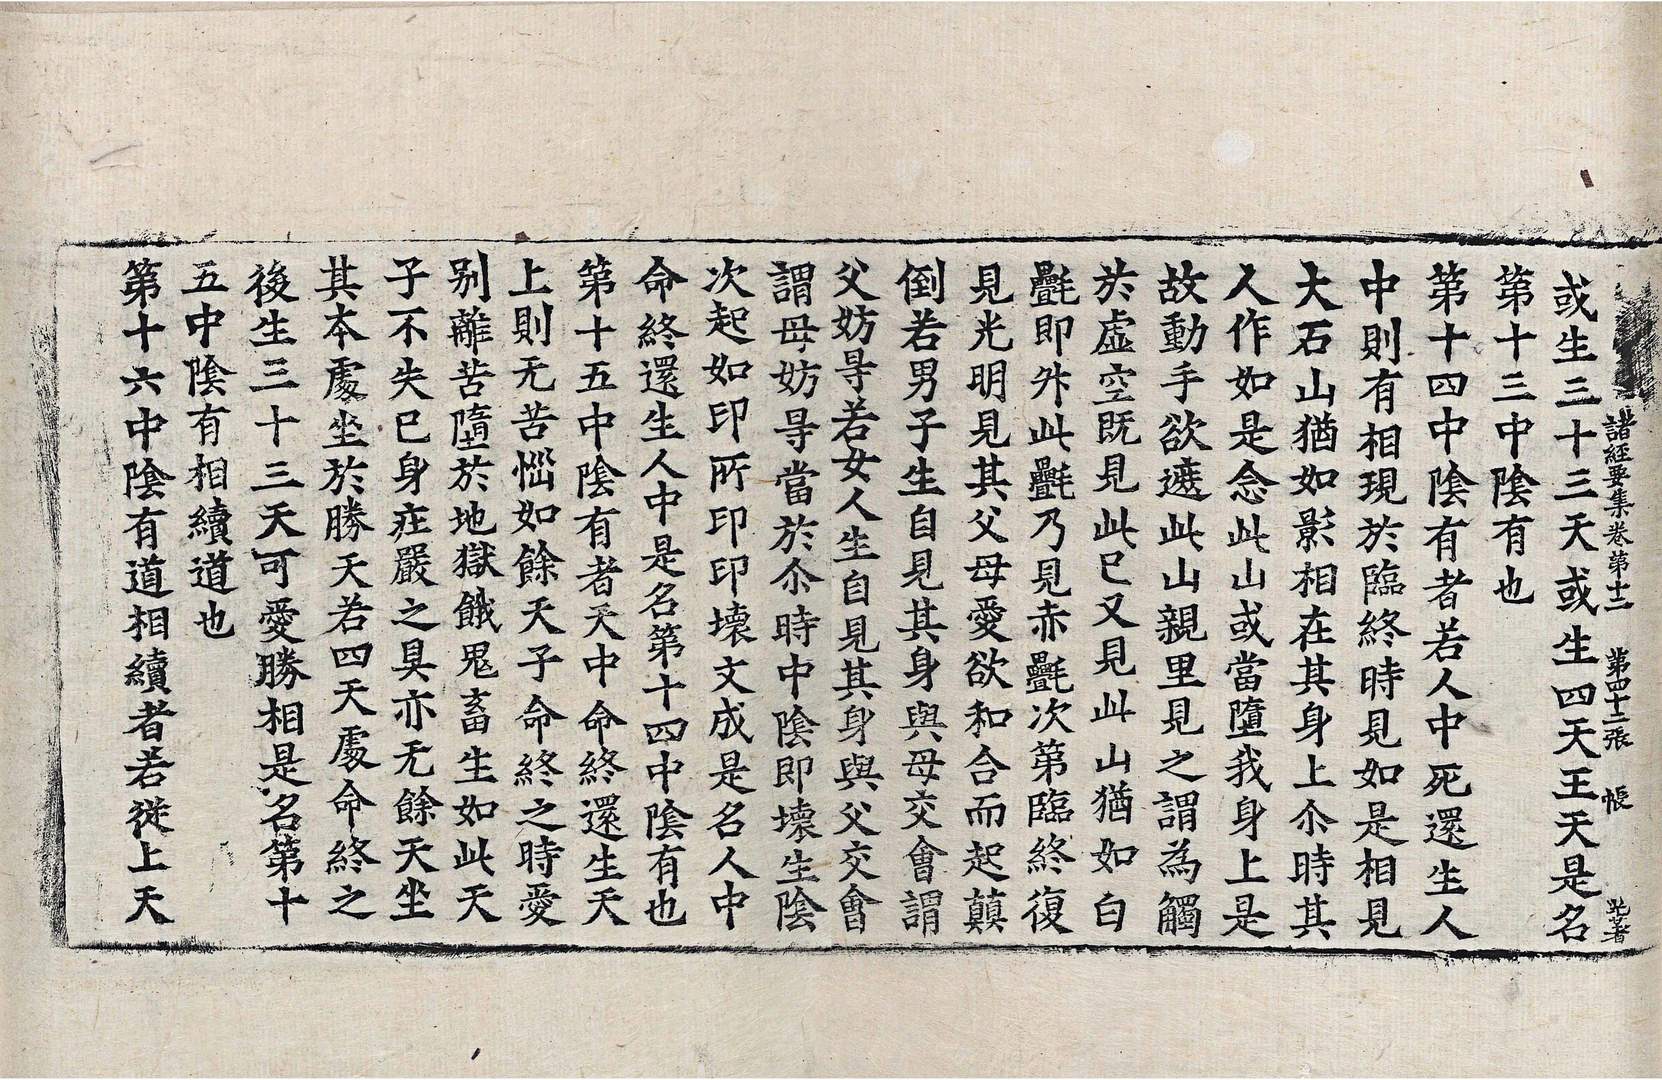 諸經要集卷第十二 第四十二張 帳
或生三十三天或生四天王天是名
第十三中陰有也
第十四中陰有者若人中死還生人
中則有相現於臨終時見如是相見
大石山猶如影相在其身上尒時其
人作如是念此山或當墮我身上是
故動手欲遮此山親里見之謂為觸
於虛空既見此已又見此山猶如白
㲲即升此㲲乃見赤㲲次第臨終復
見光明見其父母愛欲和合而起顛
倒若男子生自見其身與母交會謂
父妨㝵若女人生自見其身與父交會
謂母妨㝵當於尒時中陰即壞生陰
次起如印所印印壞文成是名人中
命終還生人中是名第十四中陰有也
第十五中陰有者天中命終還生天
上則无苦惱如餘天子命終之時愛
別離苦墮於地獄餓鬼畜生如此天
子不失已身莊嚴之具亦无餘天坐
其本處坐於勝天若四天處命終之
後生三十三天可愛勝相是名第十
五中陰有相續道也
第十六中陰有道相續者若從上天